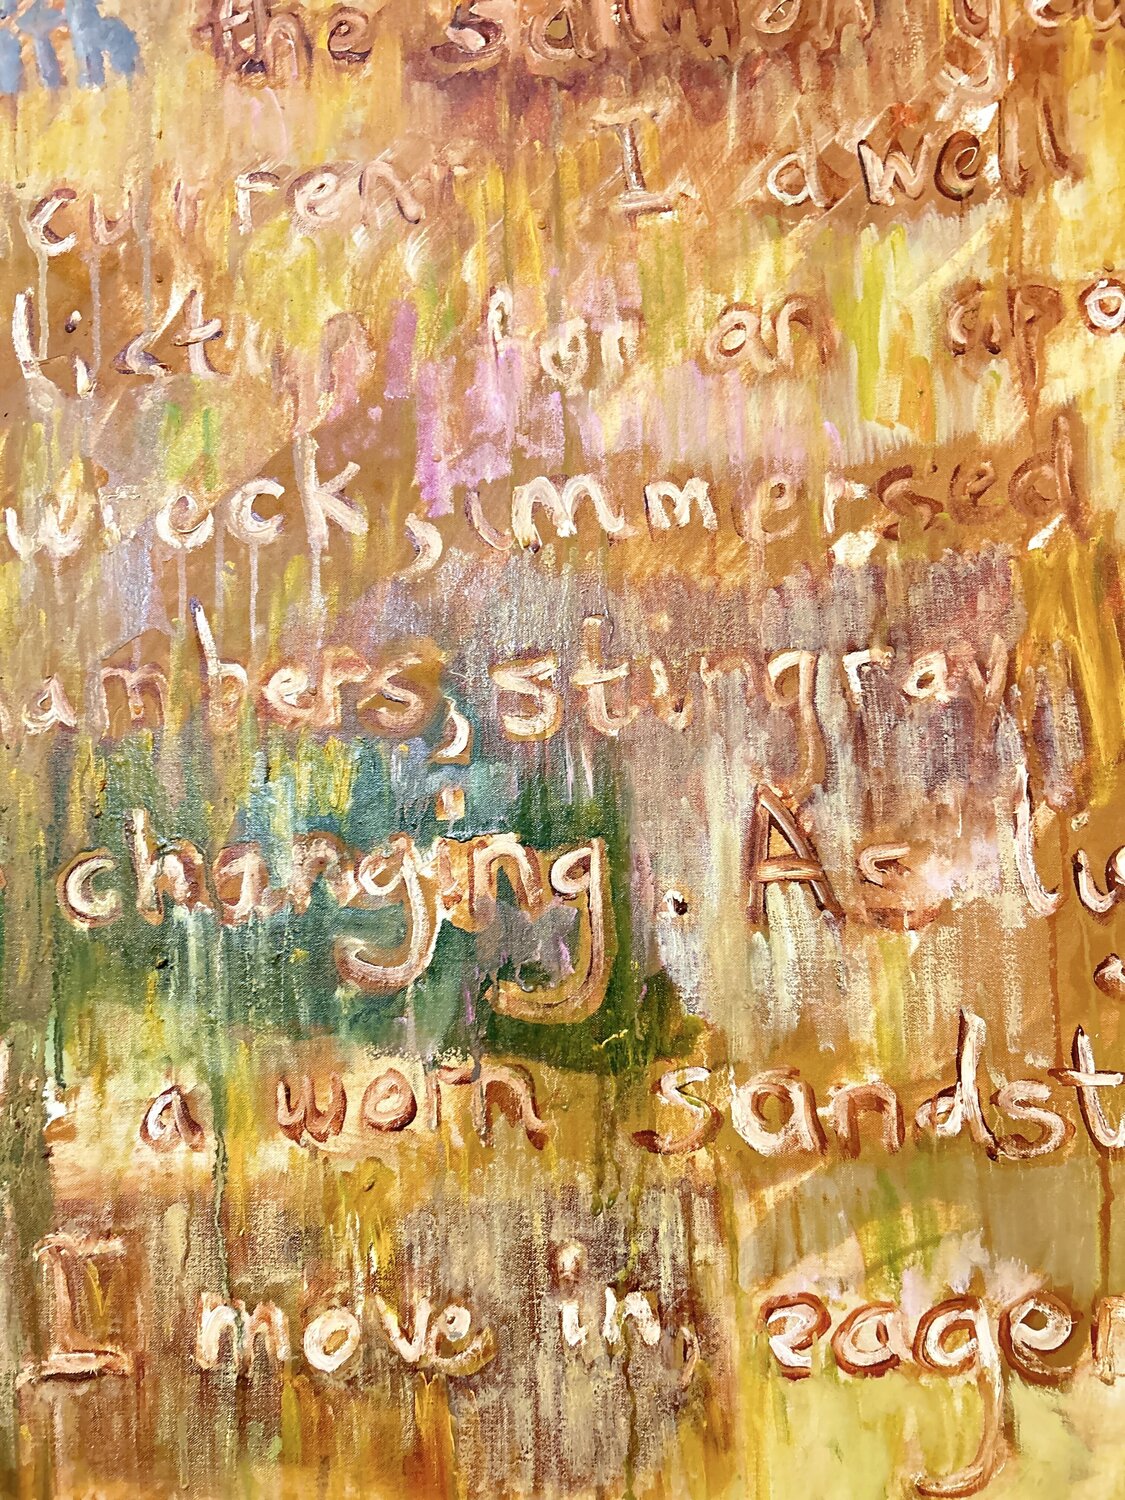 the salmon
current I dwell
listen for an apo
wreck, immersed
ambers, stingray
changing. As li
a worn sandst
I move in, eager